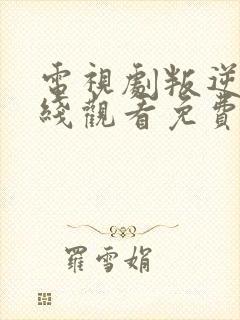 電視劇叛逆
綫觀看免費
羅雪娟